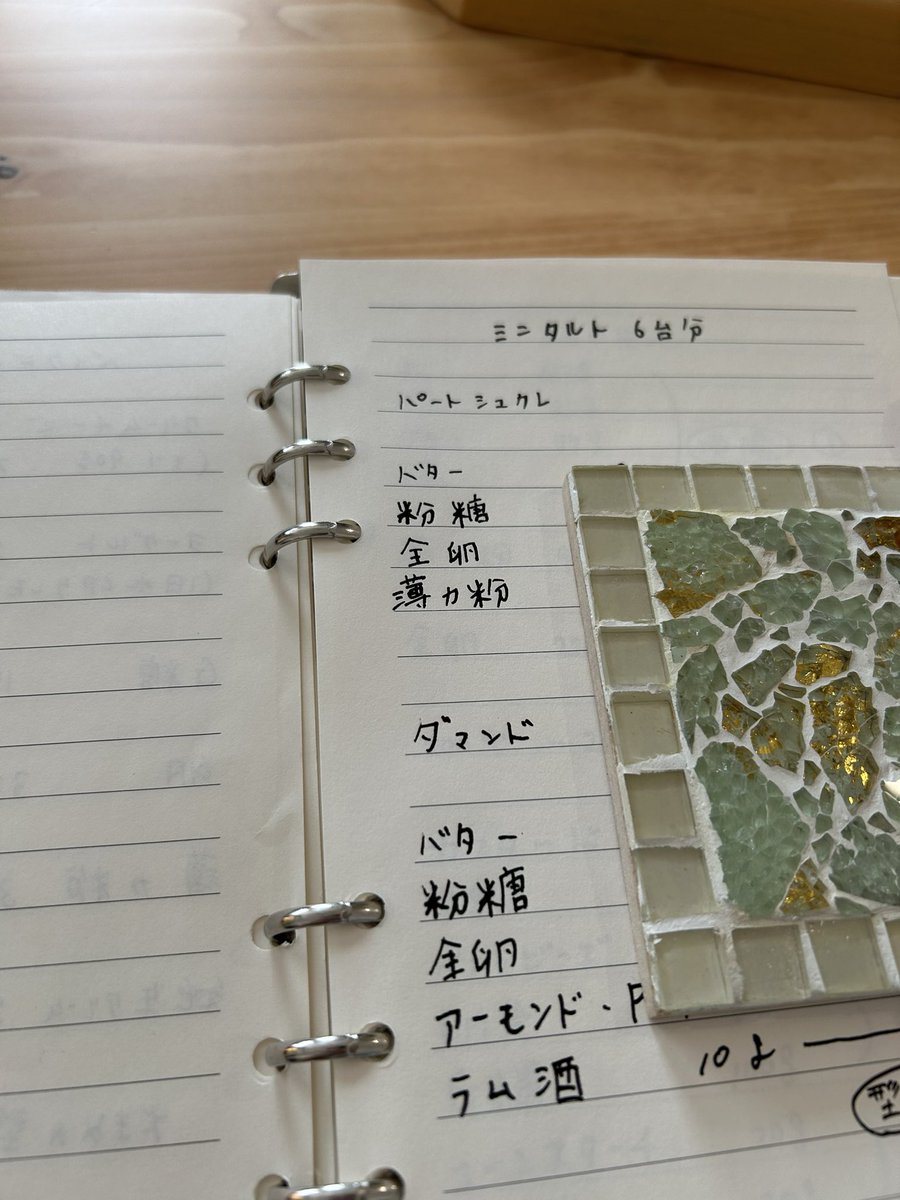 ミニタルト 6台分
パートシュクレ
バター
粉糖
全卵
薄力粉
ダマンド
バター
粉糖
全卵
アーモンド・P
ラム酒 10g
型